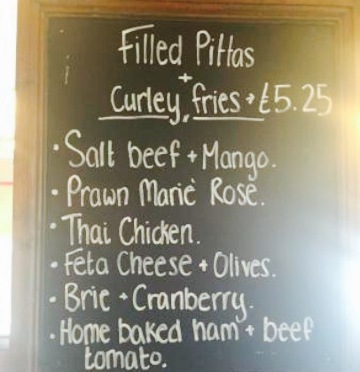 Filled Pittas
+
Curley fries • £5.25
• Salt beef + Mango.
• Prawn Marie Rose.
• Thai Chicken.
• Feta Cheese + Olives.
• Brie + Cranberry.
• Home baked ham + beef
tomato.